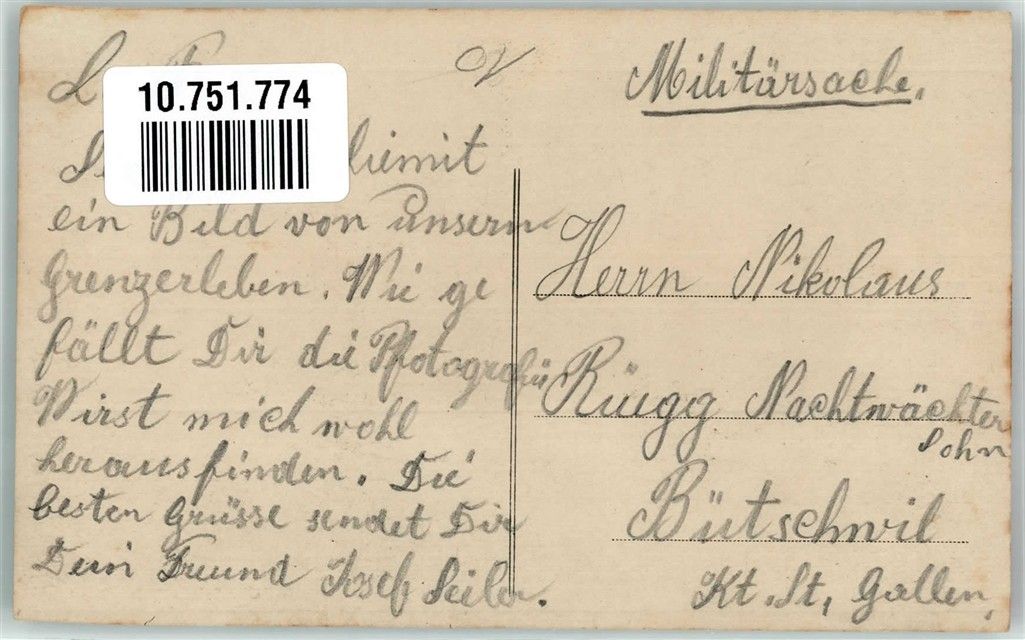 10.751.774
Militärsache.
hiemit
ein Bild von unserm
Grenzerleben. Wie ge
fällt Dir die Pfotografie
Wirst mich wohl
herausfinden. Die
besten Grüsse sendet Dir
Dein Freund Josef Seiler.
Herrn Nikolaus
Rüegg Nachtwächter
Sohn
Bütschwil
Kt. St. Gallen.